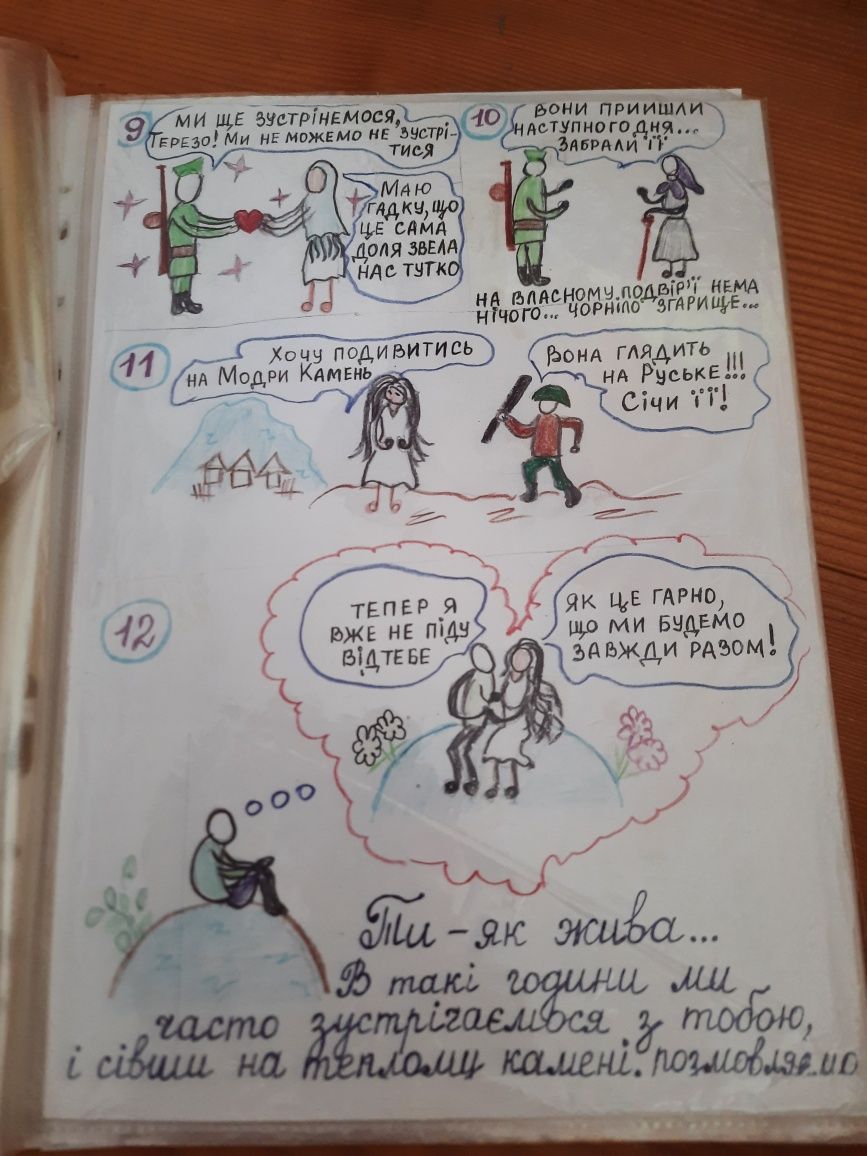 9
МИ ЩЕ ЗУСТРІНЕМОСЯ,
ТЕРЕЗО! МИ НЕ МОЖЕМО НЕ ЗУСТРІ-
ТИСЯ
МАЮ
ГАДКУ, ЩО
ЦЕ САМА
ДОЛЯ ЗВЕЛА
НАС ТУТКО
10
ВОНИ ПРИИШЛИ
НАСТУПНОГО ДНЯ...
ЗАБРАЛИ ЇЇ
НА ВЛАСНОМУ ПОДВІР'Ї НЕМА
НІЧОГО... ЧОРНІЛО ЗГАРИЩЕ...
11
ХОЧУ ПОДИВИТИСЬ
НА МОДРИ КАМЕНЬ
ВОНА ГЛЯДИТЬ
НА РУСЬКЕ!!!
СІЧИ ЇЇ!
12
ТЕПЕР Я
ВЖЕ НЕ ПІДУ
ВІД ТЕБЕ
ЯК ЦЕ ГАРНО,
ЩО МИ БУДЕМО
ЗАВЖДИ РАЗОМ!
Ти - як жива...
В такі години ми
часто зустрічаємося з тобою,
і сівши на теплому камені. позмовляємо